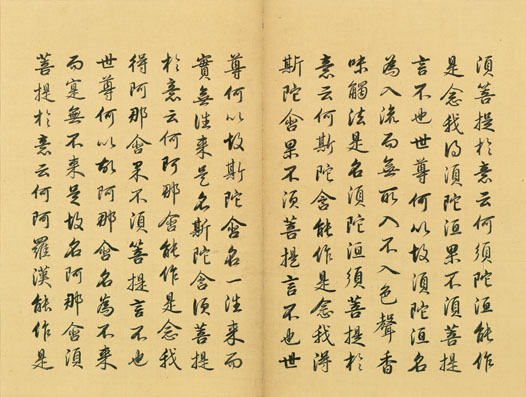 須菩提於意云何須陀洹能作
是念我得須陀洹果不須菩提
言不也世尊何以故須陀洹名
為入流而無所入不入色聲香
味觸法是名須陀洹須菩提於
意云何斯陀含能作是念我得
斯陀含果不須菩提言不也世
尊何以故斯陀含名一往来而
實無往来是名斯陀含須菩提
於意云何阿那含能作是念我
得阿那含果不須菩提言不也
世尊何以故阿那含名為不来
而實無不来是故名阿那含須
菩提於意云何阿羅漢能作是